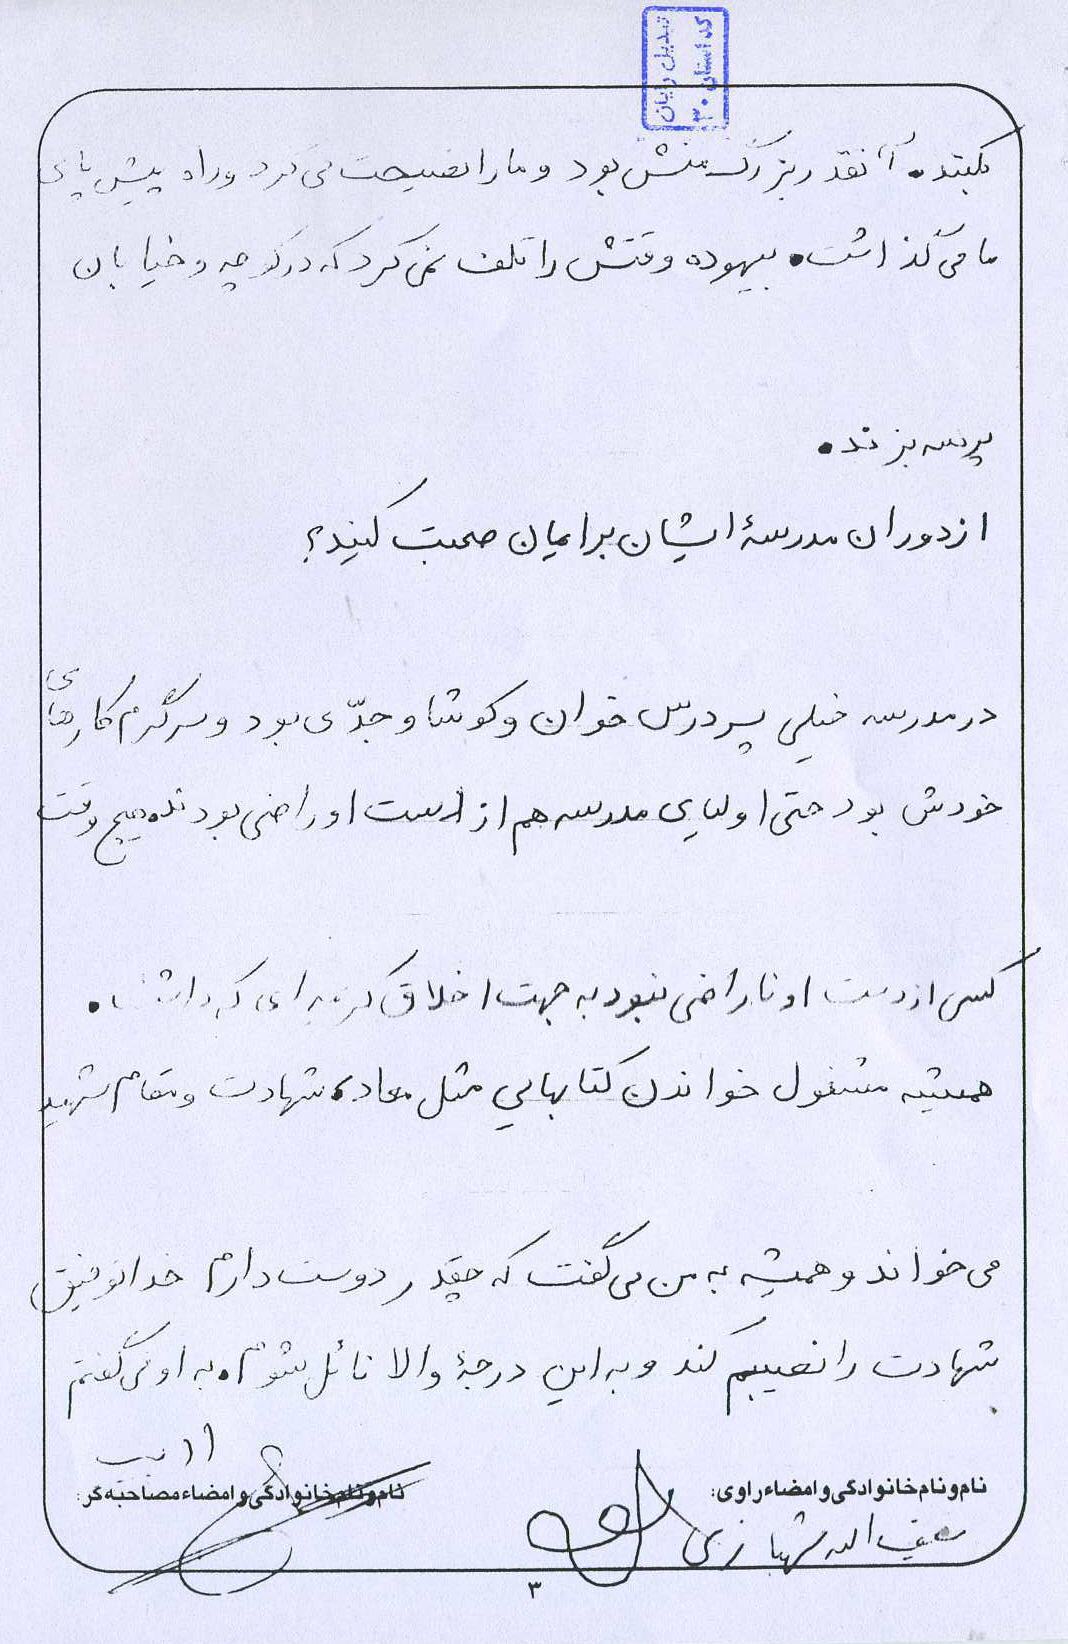 تبدیل رایان
کد استان ۳۰
بکند. آنقدر بزرگ منش بود و ما را نصیحت می کرد و راه پیش پای
ما می گذاشت. بیهوده وقتش را تلف نمی کرد که در کوچه و خیابان
پرسه بزند.
از دوران مدرسهٔ ایشان برایمان صحبت کنید؟
در مدرسه خیلی پسر درس خوان و کوشا و جدّی بود و سرگرم کارهای
خودش بود حتی اولیای مدرسه هم از دست او راضی بودند. هیچ وقت
کسی از دست او ناراضی نبود به جهت اخلاق کریمه ای که داشت.
همیشه مشغول خواندن کتابهایي مثل معاد، شهادت و مقام شهید
می خواند و همیشه به من می گفت که چقدر دوست دارم خدا توفیق
شهادت را نصیبم کند و به این درجهٔ والا نائل شوم. به او می گفتم
نام و نام خانوادگی و امضاء راوی:
نام و نام خانوادگی و امضاء مصاحبه گر:
الله شهبازی
۳